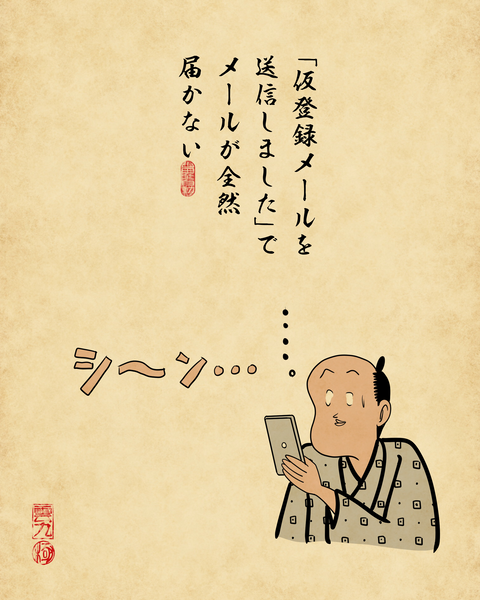 「仮登録メールを
送信しました」で
メールが全然
届かない
シ〜ン…